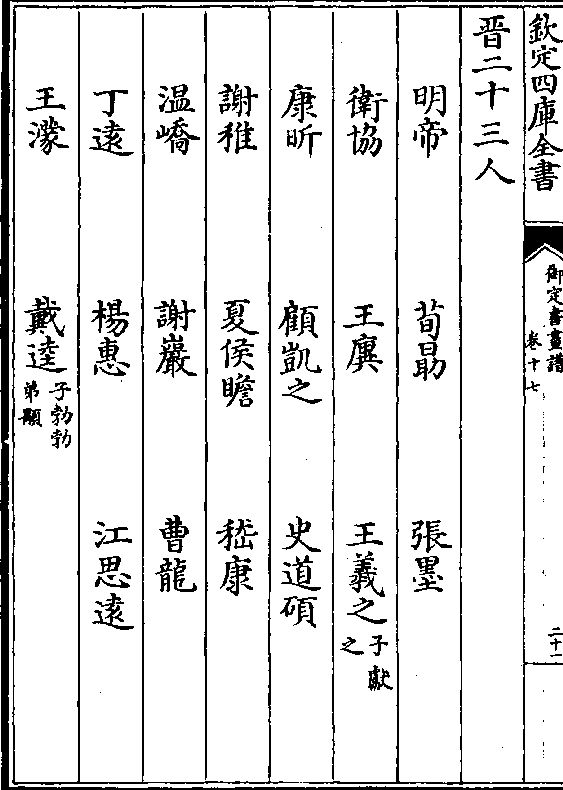 欽定四庫全書
御定書畫譜
卷十七
二十一
晋二十三人
明帝 荀勗 張墨
衛協 王廙 王羲之子獻之
康昕 顧凱之 史道碩
謝稚 夏侯瞻 嵇康
温嶠 謝巖 曹龍
丁遠 楊惠 江思遠
王濛 戴逵子勃勃弟顒